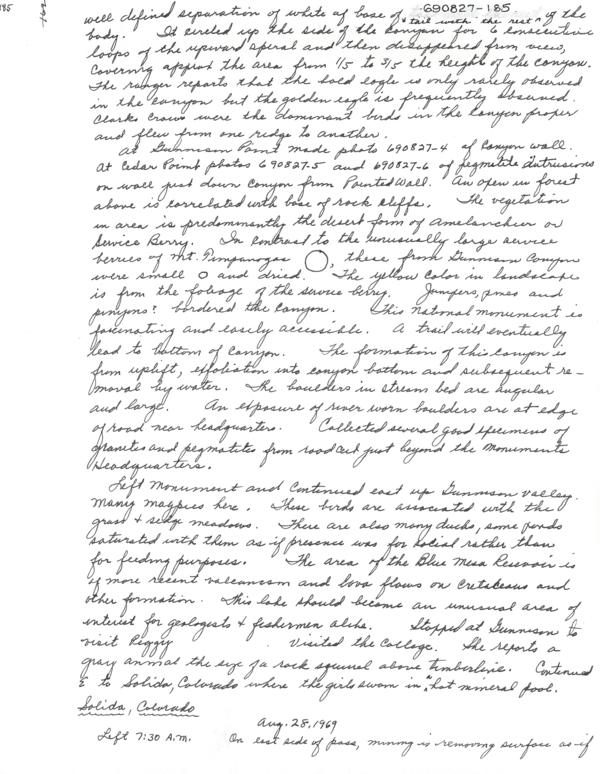 185
690827-185
well defined separation of white of base of "tail with the rest" of the
body. It circled up the side of the canyon for 6 consecutive
loops of the upward spiral and then disappeared from view,
covering approx the area from 1/5 to 3/5 the height of the canyon.
The ranger reports that the bald eagle is only rarely observed
in the canyon but the golden eagle is frequently observed.
Clarks Crows were the dominant birds in the canyon proper
and flew from one ridge to another.
At Gunnison Point made photo 690827-4 of canyon wall.
At Cedar Point photos 690827-5 and 690827-6 of pegmatite intrusions
on wall just down canyon from Painted Wall. An open in forest
above is correlated with base of rock cliffs. The vegetation
in area is predominantly the desert form of Amelanchier or
Service Berry. In contrast to the unusually large service
berries of Mt. Timpanogas, these from Gunnison Canyon
were small and dried. The yellow color in landscape
is from the foliage of the service berry. Junipers, pines and
pinyons? bordered the canyon. This national monument is
fascinating and easily accessible. A trail will eventually
lead to bottom of canyon. The formation of this canyon is
from uplift, exfoliation into canyon bottom and subsequent re-
moval by water. The boulders in stream bed are angular
and large. An exposure of river worn boulders are at edge
of road near headquarters. Collected several good specimens of
granites and pegmatites from road cut just beyond the Monuments
Headquarters.
Left Monument and continued east up Gunnison Valley.
Many magpies here. These birds are associated with the
grass + sedge meadows. There are also many ducks, some ponds
saturated with them as if presence was for social rather than
for feeding purposes. The area of the Blue Mesa Reservoir is
of more recent volcanism and lava flows on Cretaceous and
other formation. This lake should become an unusual area of
interest for geologists + fishermen alike. Stopped at Gunnison to
visit Peggy . Visited the College. She reports a
gray animal the size of a rock squirrel above timberline. Continued
E to Salida, Colorado where the girls swam in "hot mineral pool.
Salida, Colorado
Aug. 28, 1969
Left 7:30 A.M. On east side of pass, mining is removing surface as if